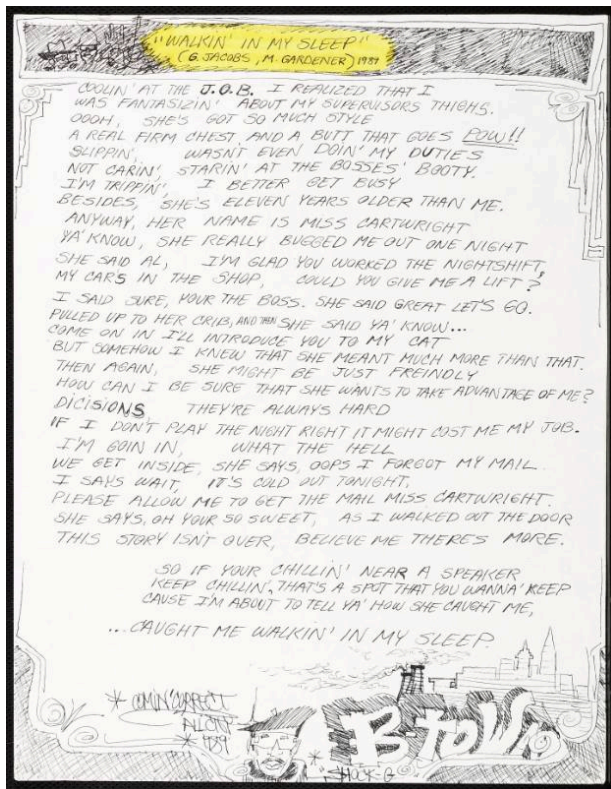 "WALKIN' IN MY SLEEP"
(G. JACOBS, M. GARDENER) 1987
COOLIN' AT THE J.O.B. I REALIZED THAT I
WAS FANTASIZIN' ABOUT MY SUPERVISORS THIGHS.
OOOH, SHE'S GOT SO MUCH STYLE
A REAL FIRM CHEST AND A BUTT THAT GOES POW!!
SLIPPIN', WASN'T EVEN DOIN' MY DUTIES
NOT CARIN', STARIN' AT THE BOSSES' BOOTY.
I'M TRIPPIN', I BETTER GET BUSY
BESIDES, SHE'S ELEVEN YEARS OLDER THAN ME.
ANYWAY, HER NAME IS MISS CARTWRIGHT
YA' KNOW, SHE REALLY BUGGED ME OUT ONE NIGHT
SHE SAID AL, I'M GLAD YOU WORKED THE NIGHTSHIFT,
MY CARS IN THE SHOP, COULD YOU GIVE ME A LIFT?
I SAID SURE, YOUR THE BOSS. SHE SAID GREAT LET'S GO.
PULLED UP TO HER CRIB, AND THEN SHE SAID YA' KNOW...
COME ON IN I'LL INTRODUCE YOU TO MY CAT
BUT SOMEHOW I KNEW THAT SHE MEANT MUCH MORE THAN THAT.
THEN AGAIN, SHE MIGHT BE JUST FREINDLY
HOW CAN I BE SURE THAT SHE WANTS TO TAKE ADVANTAGE OF ME?
DICISIONS THEY'RE ALWAYS HARD
IF I DON'T PLAY THE NIGHT RIGHT IT MIGHT COST ME MY JOB.
I'M GOIN IN, WHAT THE HELL
WE GET INSIDE, SHE SAYS, OOPS I FORGOT MY MAIL.
I SAYS WAIT, IT'S COLD OUT TONIGHT,
PLEASE ALLOW ME TO GET THE MAIL MISS CARTWRIGHT.
SHE SAYS, OH YOUR SO SWEET, AS I WALKED OUT THE DOOR
THIS STORY ISN'T OVER, BELIEVE ME THERES MORE.
SO IF YOUR CHILLIN' NEAR A SPEAKER
KEEP CHILLIN', THAT'S A SPOT THAT YOU WANNA' KEEP
CAUSE I'M ABOUT TO TELL YA' HOW SHE CAUGHT ME,
...CAUGHT ME WALKIN' IN MY SLEEP.
* COMIN' CORRECT
B-TOWN
* SHOCK-G